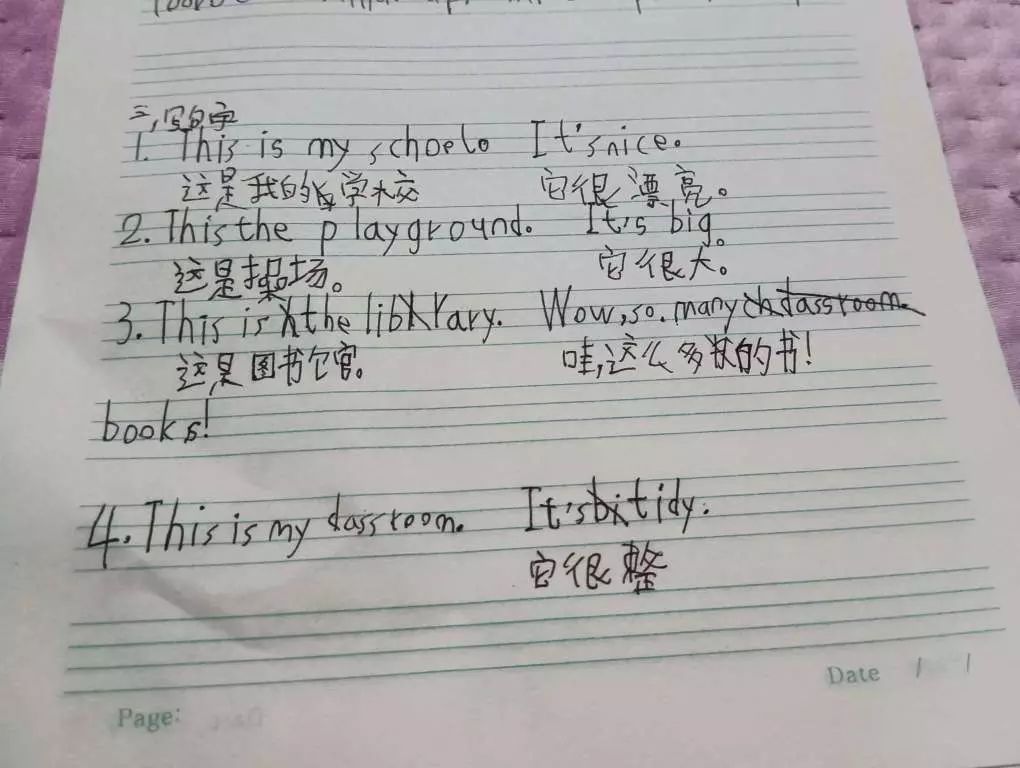 三,写句子
1. This is my schoolo It's nice.
这是我的学校 它很漂亮。
2. This the playground. It's big.
这是操场。 它很大。
3. This is the library. Wow, so. many classroom.
这是图书馆。 哇,这么多的书!
books!
4. This is my classroom. It's tidy.
它很整
Date / /
Page: